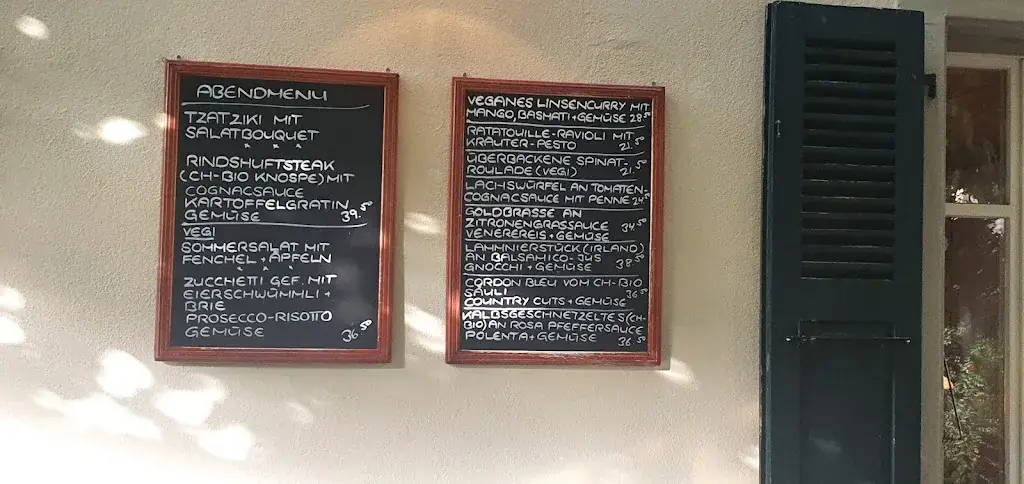 ABENDMENU
TZATZIKI MIT
SALATBOUQUET
* * *
RINDSHUFTSTEAK
(CH-BIO KNOSPE) MIT
COGNACSAUCE
KARTOFFELGRATIN
GEMÜSE 39.50
VEGI
SOMMERSALAT MIT
FENCHEL + ÄPFELN
* * *
ZUCCHETTI GEF. MIT
EIERSCHWÜMMLI +
BRIE
PROSECCO-RISOTTO
GEMÜSE 36.50
VEGANES LINSENCURRY MIT
MANGO, BASMATI + GEMÜSE 28.50
RATATOUILLE-RAVIOLI MIT
KRÄUTER-PESTO 21.50
ÜBERBACKENE SPINAT-
ROULADE (VEGI) 21.50
LACHSWÜRFEL AN TOMATEN-
COGNACSAUCE MIT PENNE 24.50
GOLDBRASSE AN
ZITRONENGRASSAUCE 34.50
VENEREREIS + GEMÜSE
LAMMNIERSTÜCK (IRLAND)
AN BALSAMICO-JUS
GNOCCHI + GEMÜSE 38.50
CORDON BLEU VOM CH-BIO
SÄULI 36.50
COUNTRY CUTS + GEMÜSE
KALBSGESCHNETZELTES (CH-
BIO) AN ROSA PFEFFERSAUCE
POLENTA + GEMÜSE 36.50